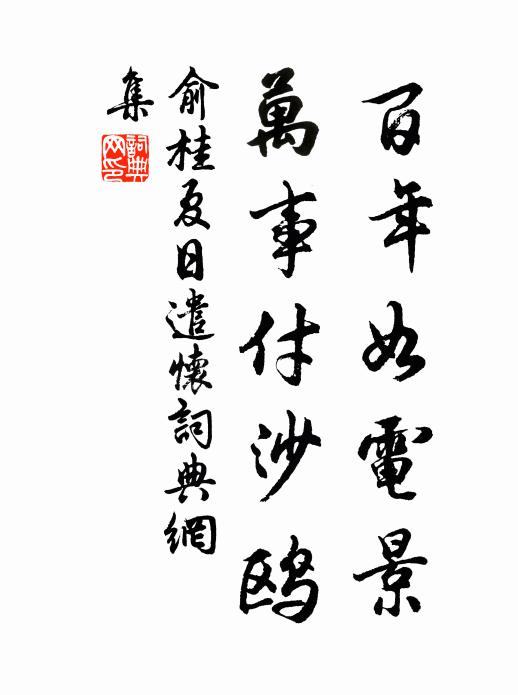 百年如電景
萬事付沙鷗
俞桂夏日遣懷詞典網
集
詞典
网印